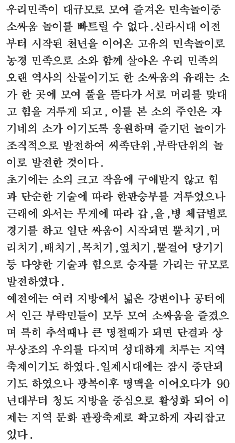 우리민족이 대규모로 모여 즐겨온 민속놀이중
소싸움 놀이를 빠트릴 수 없다.신라시대 이전
부터 시작된 천년을 이어온 고유의 민속놀이로
농경 민족으로 소와 함께 살아온 우리 민족의
오랜 역사의 산물이기도 한 소싸움의 유래는 소
가 한 곳에 모여 풀을 뜯다가 서로 머리를 맞대
고 힘을 겨루게 되고, 이를 본 소의 주인은 자
기네의 소가 이기도록 응원하며 즐기던 놀이가
조직적으로 발전하여 씨족단위,부락단위의 놀
이로 발전한 것이다.
초기에는 소의 크고 작음에 구애받지 않고 힘
과 단순한 기술에 따라 한판승부를 겨루었으나
근래에 와서는 무게에 따라 갑,을,병 체급별로
경기를 하고 일단 싸움이 시작되면 뿔치기,머
리치기,배치기,목치기,옆치기,뿔걸어 당기기
등 다양한 기술과 힘으로 승자를 가리는 규모로
발전하였다.
예전에는 여러 지방에서 넓은 강변이나 공터에
서 인근 부락민들이 모두 모여 소싸움을 즐겼으
며 특히 추석때나 큰 명절때가 되면 단결과 상
부상조의 우의를 다지며 성대하게 치루는 지역
축제이기도 하였다.일제시대에는 잠시 중단되
기도 하였으나 광복이후 명맥을 이어오다가 90
년대부터 청도 지방을 중심으로 활성화 되어 이
제는 지역 문화 관광축제로 확고하게 자리잡고
있다.